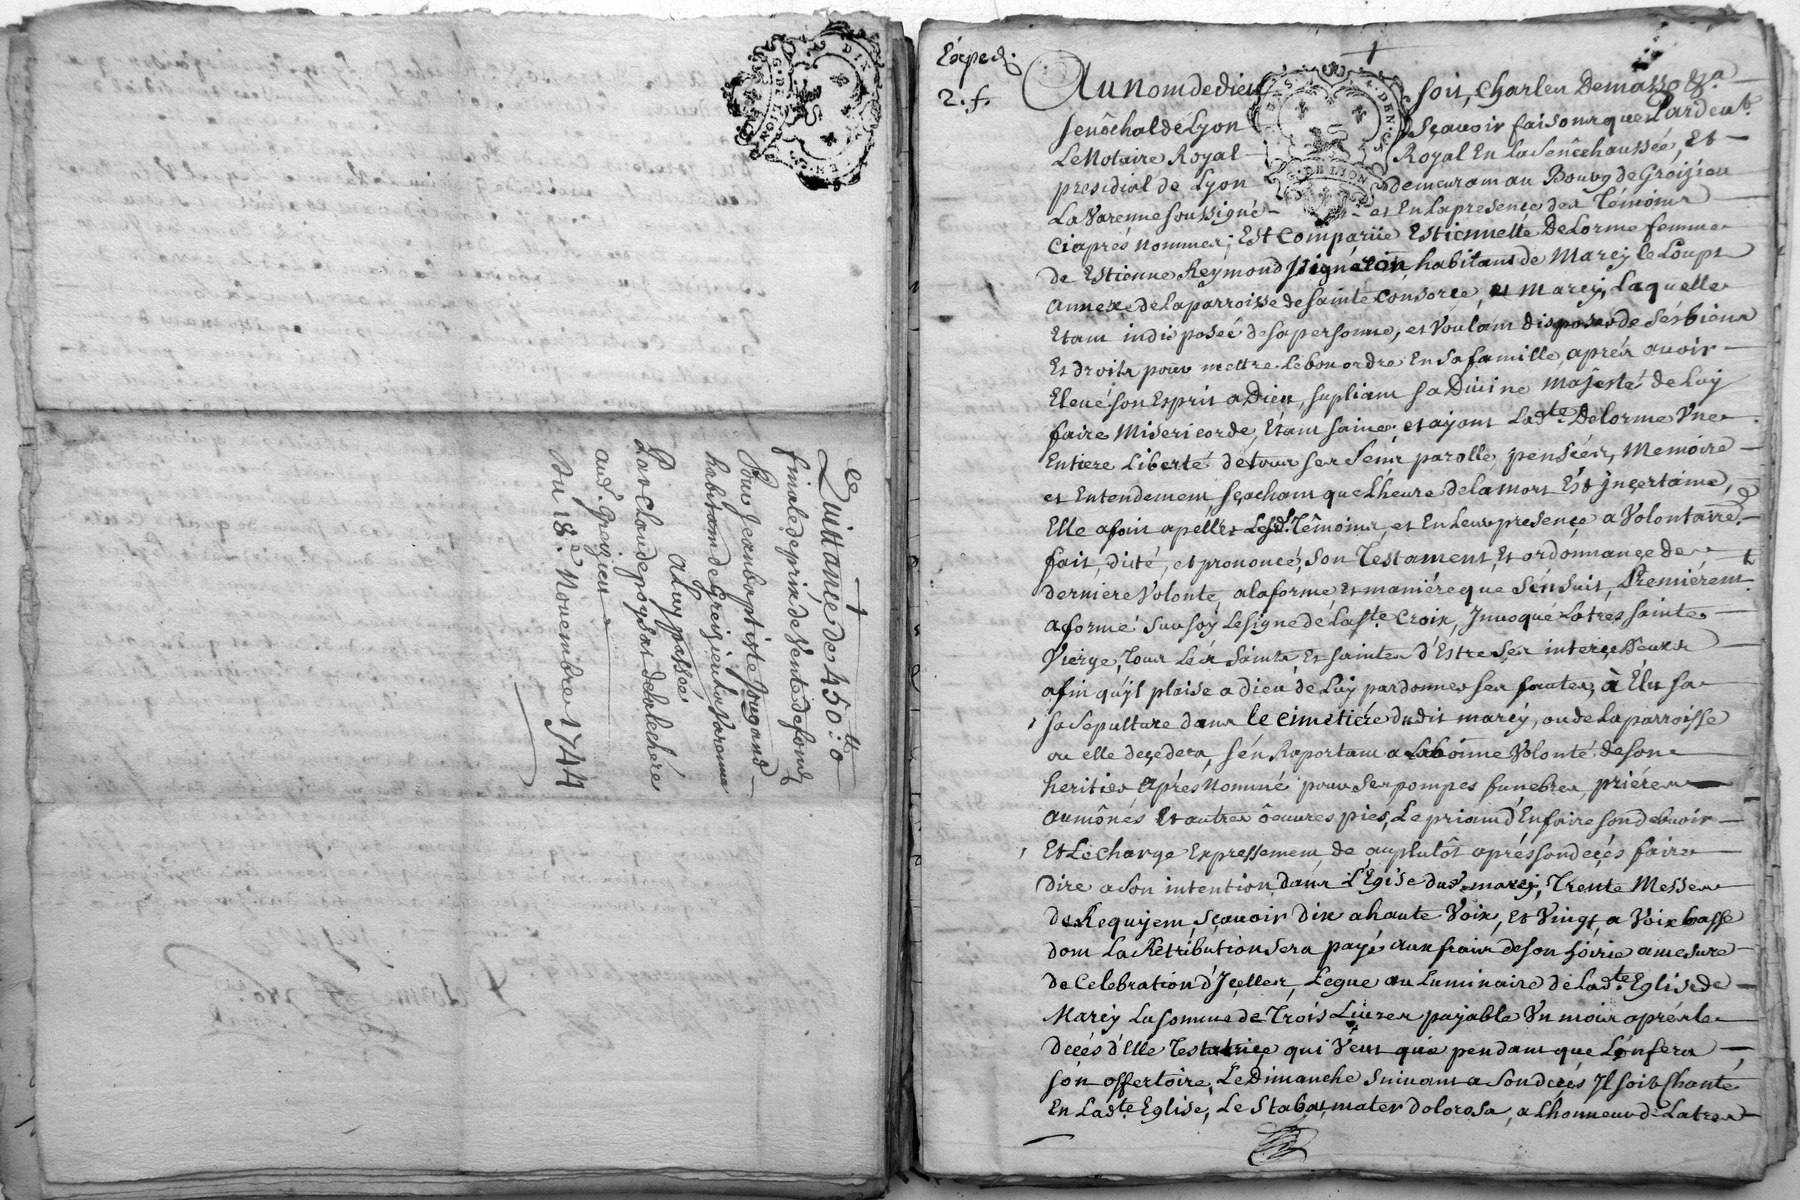 +
Quittance de 450.tt 0
finale de prix de vente de fond
Pour Jean baptiste jougand
habitant de Greizieu la varenne
a Luy passée
Par Claude poyard de la chére
aud. Greizieu
Du 18.e Novembre 1744
Exped.
2. f.
+
Au nom de dieu soit, Charles Demasso
senéchal de Lyon Sçavoir faisons que Pardevt.
Le Notaire Royal Royal En la Senéchaussée, Et
presidial de Lyon demeurant au Bourg de Greizieu
La Varenne soussigné et En la presence des Témoins
Ciaprés nommez, Est Comparüe Estiennette Delorme femme
de Estienne Reymond vigneron habitant de Marcy le Loups
annexe de la parroisse de sainte Consorce, et Marcy, Laquelle
Etant indisposée de sa personne, et Voulant disposer de sés biens
Et droits pour mettre Le bon ordre En sa famille, aprés avoir
Elevé son Esprit a Dieu, supliant sa Divine Majesté de Luy
faire Misericorde, Etant saine et ayant Lad.te Delorme Vne
Entiere Liberté de tous ses Sens parolle, pensées, Memoire
et Entendement, sçachant que L'heure de la mort Est jnçertaine,
Elle a fait apeller Lesd. Témoins, et En Leur presençe a Volontaire.
fait, dicté, et prononcé, son Testament, Et ordonnançe de
derniere Volonté, a la forme Et maniére que S'ensuit, Premiérem.t
a formé sur soy Le signe de La s.te Croix, Jnvoqué La tres sainte
Vierge, tous Les Saints Et saintes d'Estre ses interçesseurs
afin qu'jl plaise a dieu de Luy pardonner ses fautes, à Elu sa
sa sepulture dans le cimetiére dudit marcy, ou de La parroisse
ou elle decedera, s'en Raportant a La bonne Volonté de son
heritier aprés Nommé pour ses pompes funebres, priéres
aumônes Et autres oeuvres pies, Le priant d'En faire son devoir
Et Le charge Expressement de au plutôt aprés son decés faire
dire a son intention dans L'Egise dud. marcy, Trente Messes
de Requjem, sçavoir dix a haute Voix, Et Vingt a Voix basse
dont La Retribution sera payé aux frais de son hoirie a mesure
de Celebration d'Jçelles, Legue au Luminaire de Lad.te Eglise de
Marcy La somme de Trois Livres payable Vn mois aprés le
deçés d'Elle Testatriçe qui Veut que pendant que L'on fera
son offertoire, Le Dimanche Suivant a son decés Jl soit Chanté
En Lad.te Eglise, Le Stabat mater dolorosa, a L'honneur de La tres